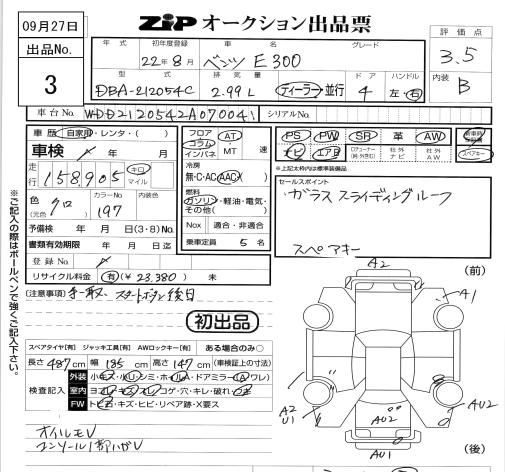 09月27日
ZiP オークション出品票
出品No.
3
年式 初年度登録 車名 グレード
22年8月 ベンツ E300
型式 排気量 ドア ハンドル
DBA-212054C 2.99L ディーラー・並行 4 左・右
評価点
3.5
内装
B
車台No. WDD2120542A070041 シリアルNo.
車歴 自家用・レンタ・( )
車検 年 月
走行 158,905 キロ マイル
色(元色) クロ カラーNo 197 内装色
予備検 年 月(3・8)No.
書類有効期限 年 月 日迄
登録No
リサイクル料金 有(¥23,380) 未
フロア コラム インパネ AT・MT 速
冷房 無・C・AC・AAC
燃料 ガソリン・軽油・電気・その他( )
Nox 適合・非適合
乗車定員 5名
PS PW SR 革 AW
ナビ エアB 社外ナビ 社外AW スペアキー
※上記太枠内は標準装備品
セールスポイント
ガラス スライディングルーフ
スペアキー
(注意事項)
スタートボタン後日
初出品
スペアタイヤ[有] ジャッキ工具[有] AWロックキー[有] ある場合のみ○
長さ 487cm 幅 185cm 高さ 147cm (車検証上の寸法)
検査記入
外装 小キズ・小U・シミ・ホールA・ドアミラー(A ワレ)
室内 ヨゴレ・キズ・スレ・コゲ・穴・キレ・破れ
FW トビA・キズ・ヒビ・リペア跡・X要ス
オイルモレ
コンソール1部ハガレ
※ご記入の際はボールペンで強くご記入下さい。
(前)
A2
A1
A2
U1
AU2
AU2
AU1
(後)